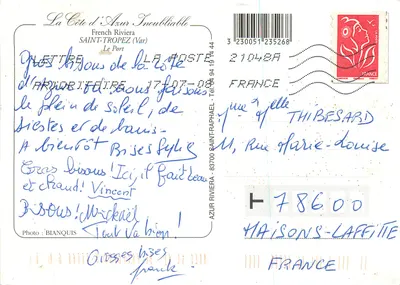 La Côte d'Azur Inoubliable
French Riviera
SAINT-TROPEZ (Var)
Le Port
3 230051 235268
LETTRE LA POSTE
PRIORITAIRE 17-07-08
21048A
FRANCE
FRANCE
Gros bisous de la côte
d'azur où nous faisons
le plein de soleil, de
siestes et de bains.
A bientôt Bises
Gros bisous! Ici, il fait beau
et chaud! Vincent
Bisous! Mickaël
Tout va bien!
Grosses bises
Frank
Photo : BIANQUIS
AZUR RIVIERA - 83700 SAINT-RAPHAËL - Tél. 04 94 19 14 44
THIBESARD
11, Rue Marie-Louise
78600
MAISONS-LAFFITTE
FRANCE